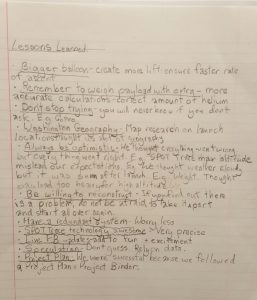 Lessons Learned
• Bigger balloon - create more lift ensure faster rate
of ascent
• Remember to weigh payload with extra - more
accurate calculations - correct amount of helium
• Don't stop trying - you will never know if you dont
ask. E.g
• Washington Geography - Map research on launch
locations
• Always be optimistic - We thought everything went wrong
but everything went right. E.g SPOT Trace max altitude
mislead our expectations. We thought weather cloudy
but it was sum after launch. E.g Weight. Thought
payload too heavy for high altitude.
• Be willing to reconstruct - If you find out there
is a problem, do not be afraid to take it apart
and start all over again.
• Have a redundant system - Worry less
• SPOT Trace technology awesome - Very precise
• Live FB updates - add to fun + excitement
• Speculation - Dont guess. Rely on data.
• Project Plan - We were successful because we followed
a Project Plan + Project Binder.